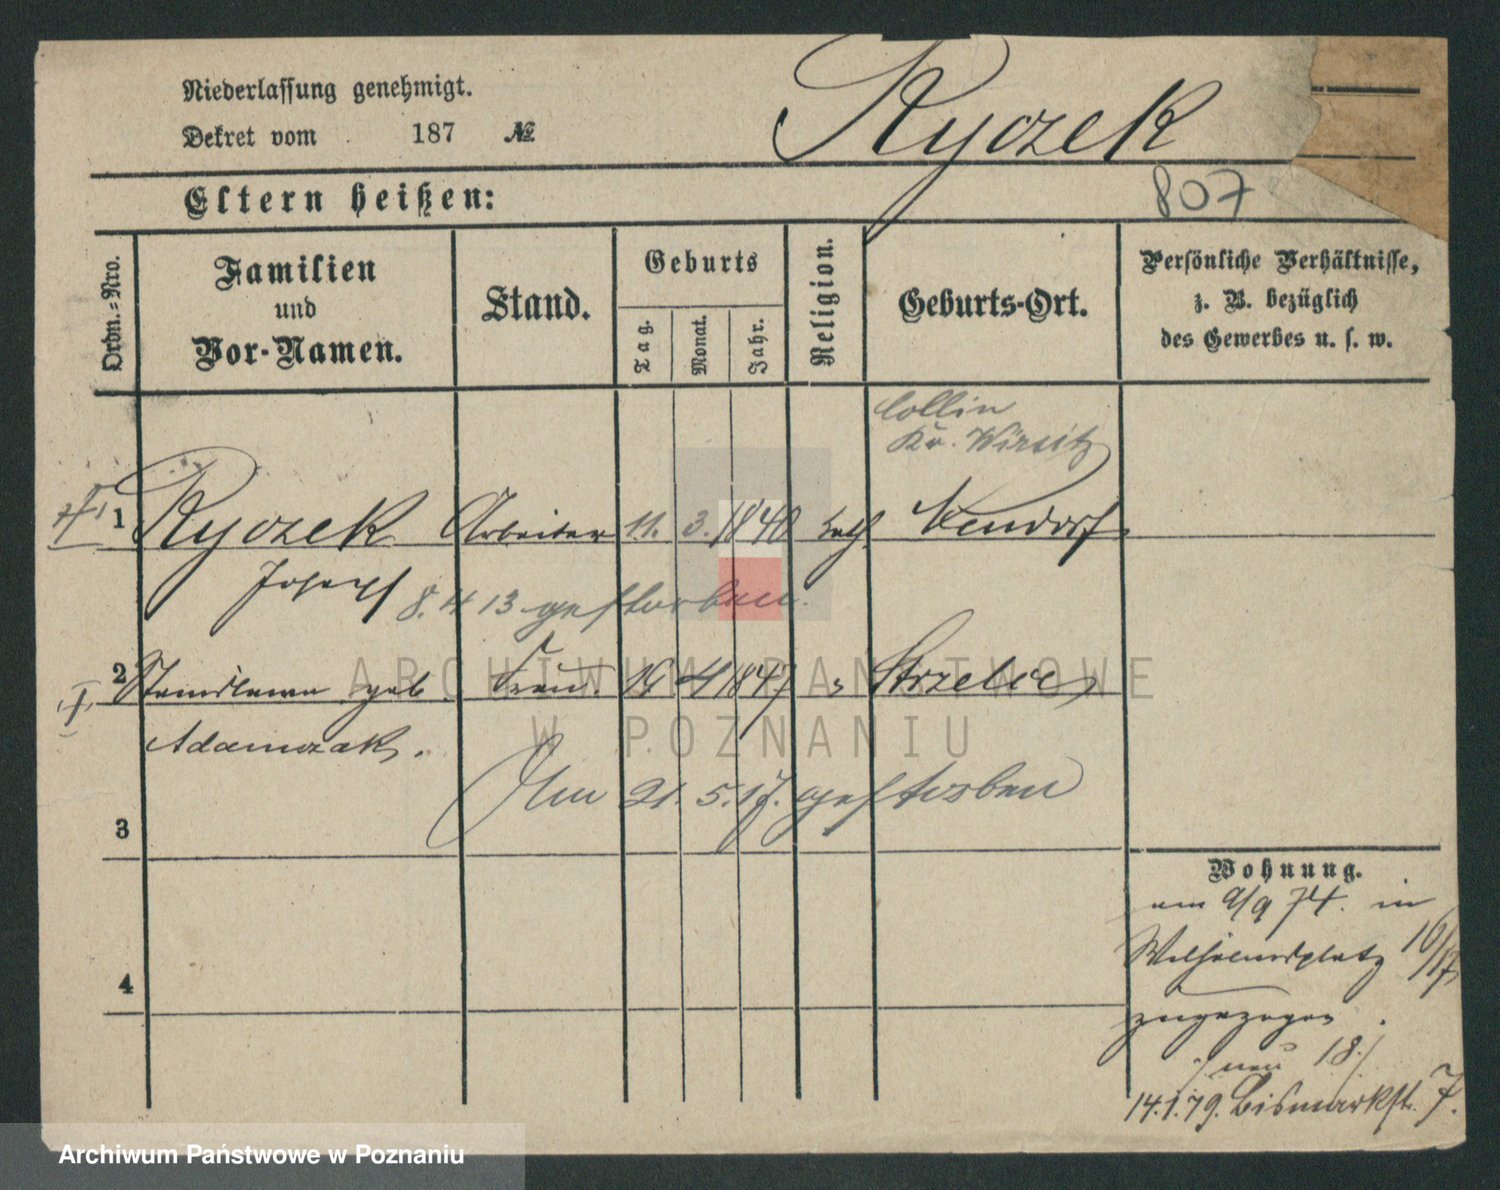 Niederlassung genehmigt.
Dekret vom 187 №
Ryczek
807
Eltern heißen:
Ordn.-Nro.
Familien
und
Vor-Namen.
Stand.
Geburts
Tag.
Monat.
Jahr.
Religion.
Geburts-Ort.
Persönliche Verhältnisse,
z. B. bezüglich
des Gewerbes u. s. w.
Collin
Kr. Wirsitz
1 Ryczek Arbeiter 11. 3. 1840 kath Neudorf
Josef
8. 4 13 gestorben.
2 Stanislawa geb Frau. 4 1847 Strzelce
Adamczak.
Am 21. 5. 17. gestorben
3
4
Wohnung.
am 9/9 74. in
Wilhelmsplatz 16/17
zugezogen.
/ neu 18./
14.1.79. Bismarkstr. 7.
ARCHIWUM PAŃSTWOWE
W POZNANIU
Archiwum Państwowe w Poznaniu